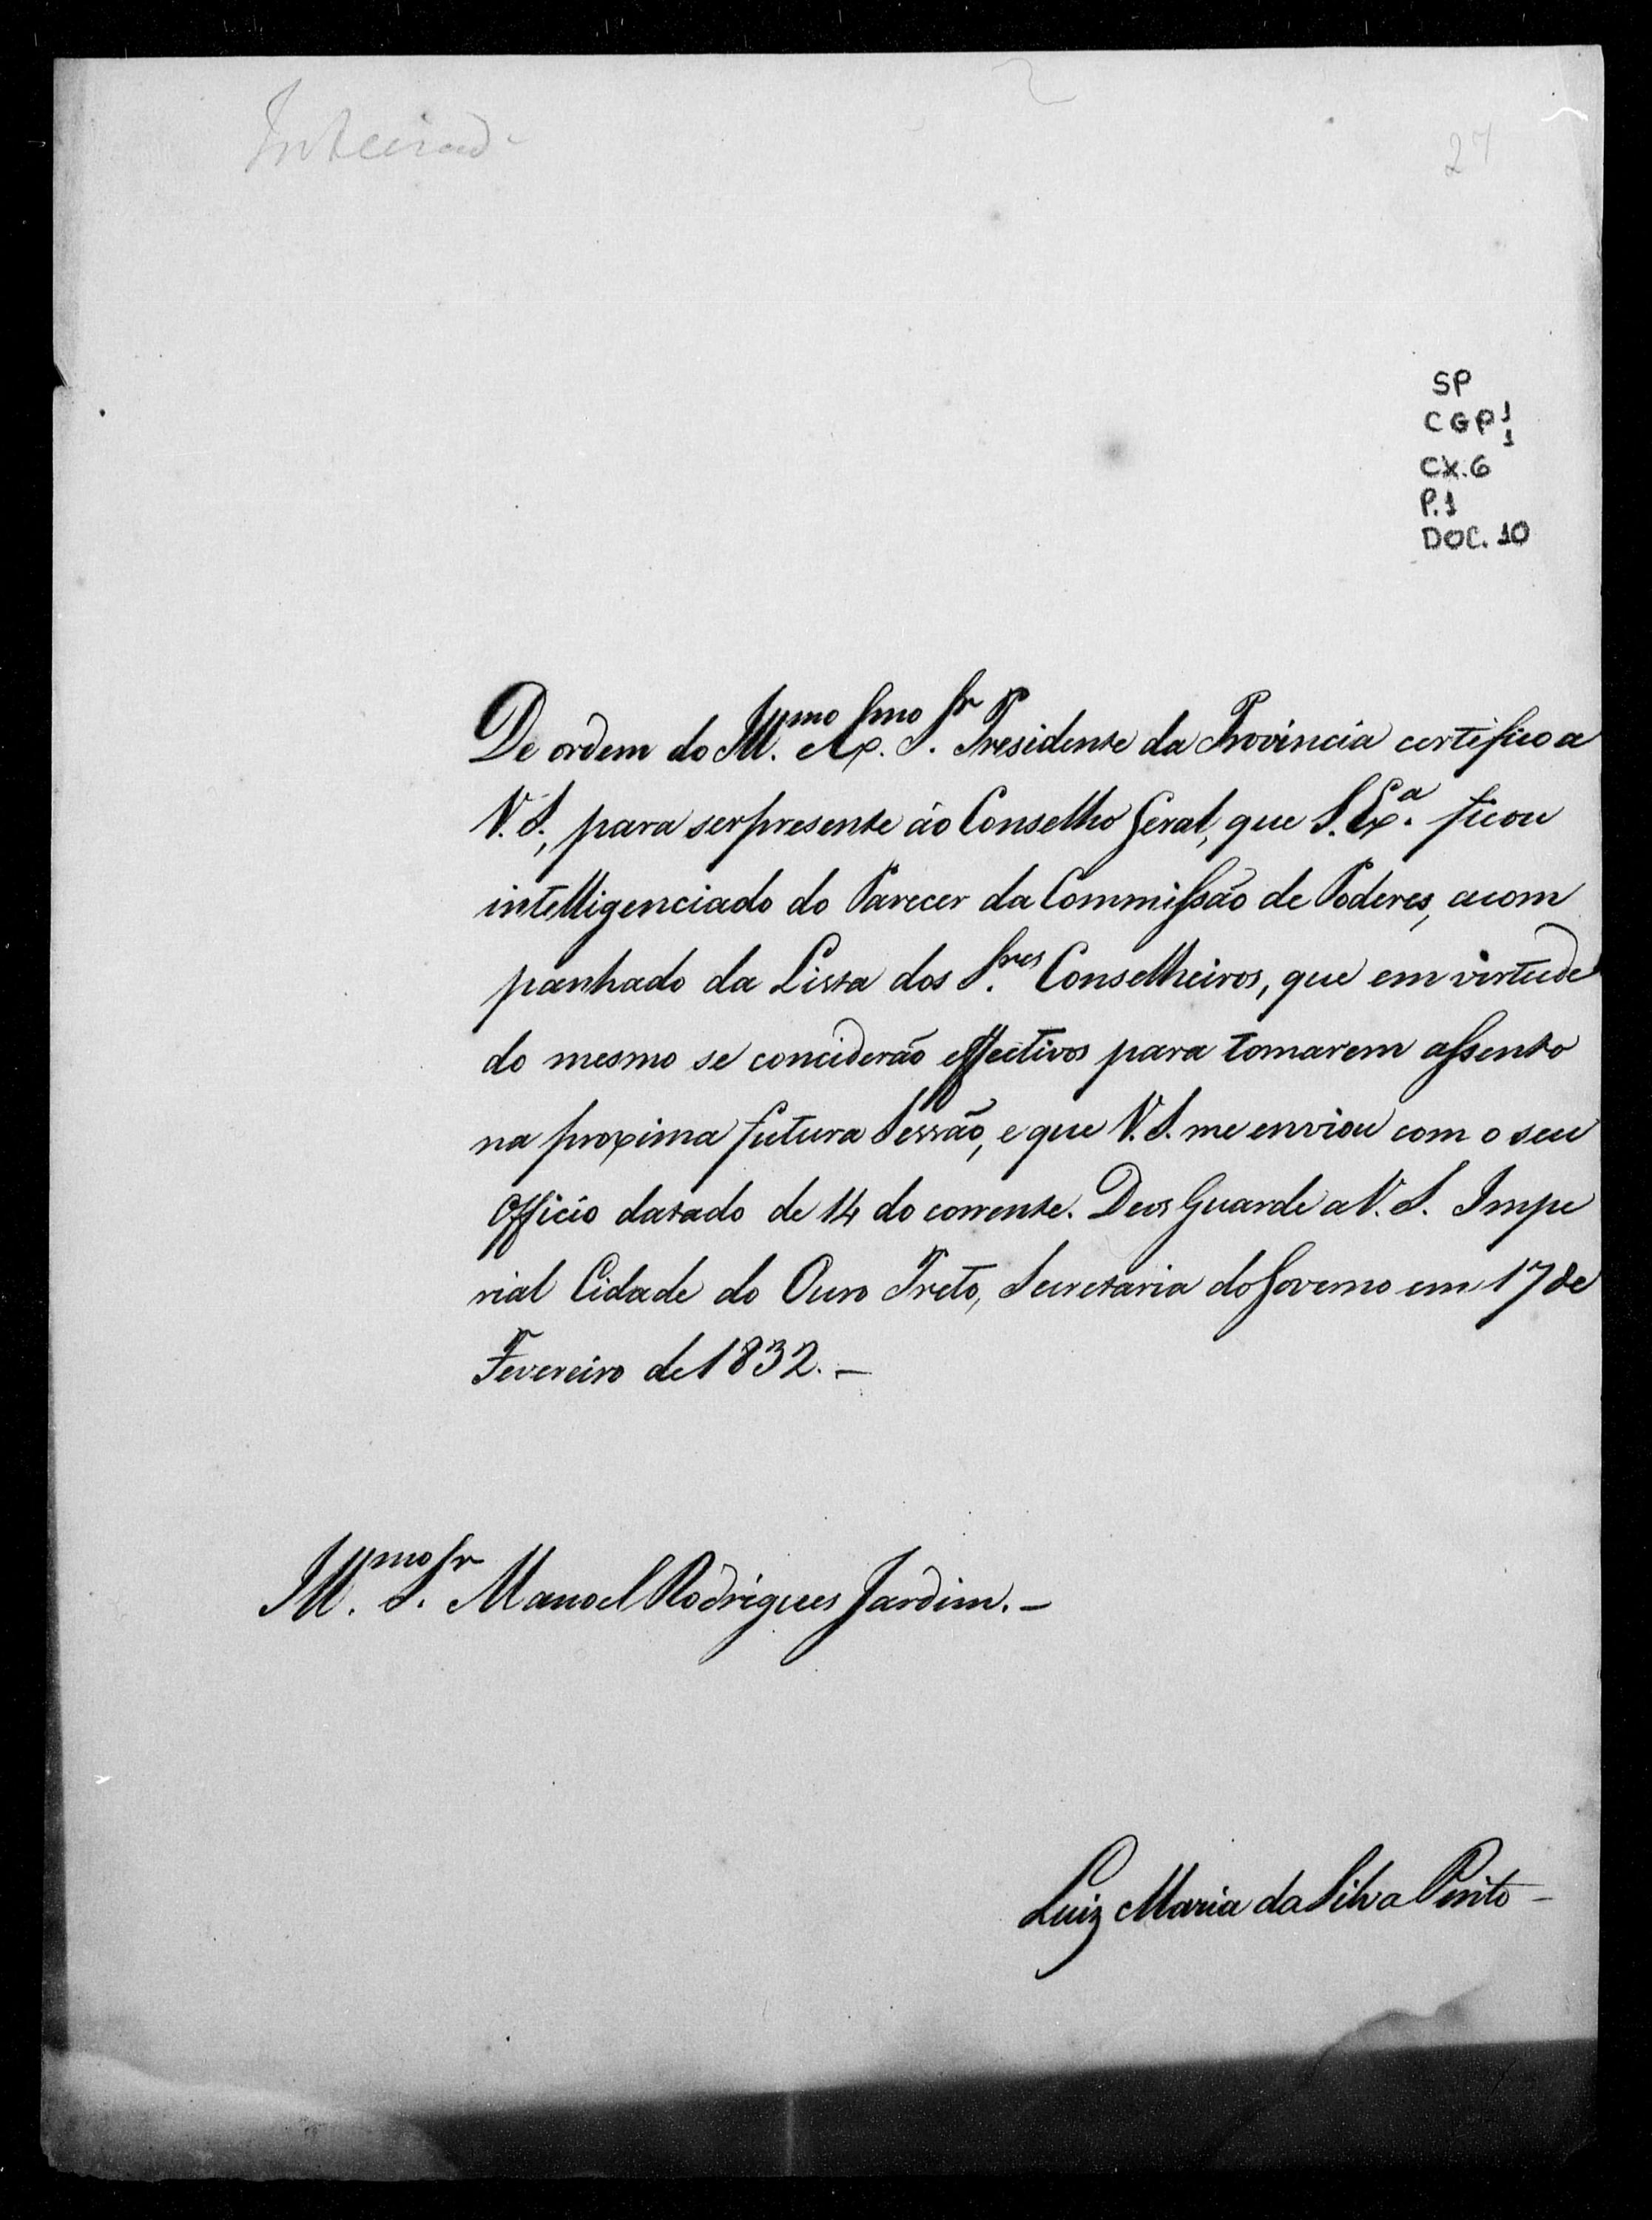 Inteirado
27
SP
CGP 1/1
CX.6
P.1
DOC. 10
De ordem do Ill.mo Ex.mo S.r Presidente da Provincia certifico a
V. S., para ser presente áo Conselho Geral, que S. Ex.a ficou
intelligenciado do Parecer da Commissão de Poderes, acom
panhado da Lista dos S.res Conselheiros, que em virtude
do mesmo se conciderão effectivos para tomarem assento
na proxima futura Sessão, e que V. S. me enviou com o seu
Officio datado de 14 do corrente. Deos Guarde a V. S. Impe
rial Cidade do Ouro Preto, Secretaria do Governo em 17 de
Fevereiro de 1832. —
Ill.mo S.r Manoel Rodrigues Jardim. —
Luiz Maria da Silva Pinto —